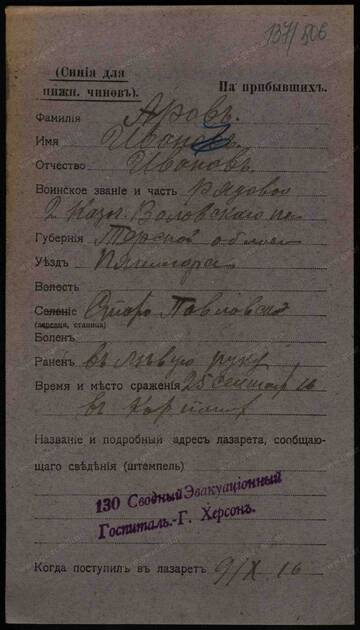 137/506
(Синія для
нижн. чиновъ).
На прибывшихъ.
Фамилія Аровъ.
Имя Иванъ
Отчество Ивановъ.
Воинское званіе и часть рядовой
2
Губернія Терской облас
Уѣздъ Пятигорс
Волость
Селеніе Старо Павловской
(деревня, станица)
Боленъ
Раненъ въ лѣвую руку
Время и мѣсто сраженія 25 сентяб 16
въ Карпат
Названіе и подробный адресъ лазарета, сообщаю-
щаго свѣдѣнія (штемпель)
130 Сводный Эвакуаціонный
Госпиталь.-Г. Херсонъ.
Когда поступилъ въ лазаретъ 9/X 16